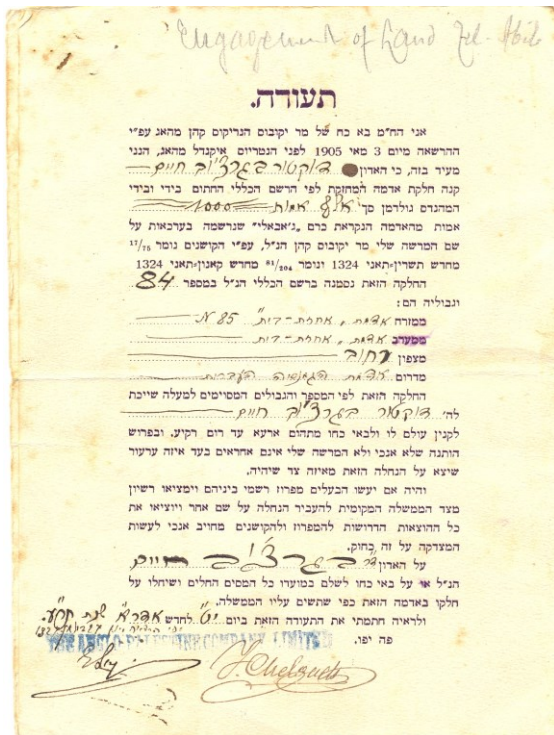 Engagement of Land Tel-Abib
תעודה.
אני הח"מ בא כח של מר יקובוס הנריקוס קהן מהאג עפ"י
ההרשאה מיום 3 מאי 1905 לפני הנטריוס איקנדל מהאג, הנני
מעיד בזה, כי האדון דוקטור בוגרצ'וב חיים
קנה חלקת אדמה המחזקת לפי הרשם הכללי החתום בידי ובידי
המהנדס גולדמן סך אלף אמות 1000
אמות מהאדמה הנקראת כרם "ג'באלי" שנרשמה בערכאות על
שם המרשה שלי מר יקובוס קהן הנ"ל, עפ"י הקושנים נומר 17/75
מחדש תשרין-תאני 1324 ונומר 81/204 מחדש קאנון-תאני 1324
החלקה הזאת נסמנה ברשם הכללי הנ"ל במספר 84
וגבוליה הם:
ממזרח אדמת "אחוזת-בית" 85 №
ממערב אדמת "אחוזת-בית"
מצפון רחוב
מדרום אדמת הגמנסיה העברית
החלקה הזאת לפי המספר והגבולים המסוימים למעלה שייכת
לה' דוקטור בוגרצ'וב חיים
לקנין עולם לו ולבאי כחו מתהום ארעא עד רום רקיע. ובפרוש
הותנה שלא אנכי ולא המרשה שלי אינם אחראים בעד איזה ערעור
שיצא על הנחלה הזאת מאיזה צד שיהיה.
והיה אם יעשו הבעלים מפרוז רשמי ביניהם וימציאו רשיון
מצד הממשלה המקומית להעביר הנחלה על שם אחר ויוציאו את
כל ההוצאות הדרושות להמפרוז ולהקושנים מחויב אנכי לעשות
המצדקה על זה כחוק.
על האדון ד"ר בוגרצ'וב חיים
הנ"ל או על באי כחו לשלם במועדו כל המסים החלים ושיחלו על
חלקו באדמה הזאת כפי שתשים עליו הממשלה.
ולראיה חתמתי את התעודה הזאת ביום י"ט לחדש אדר א' שנת תר"ע.
פה יפו.
THE ANGLO-PALESTINE COMPANY, LIMITED